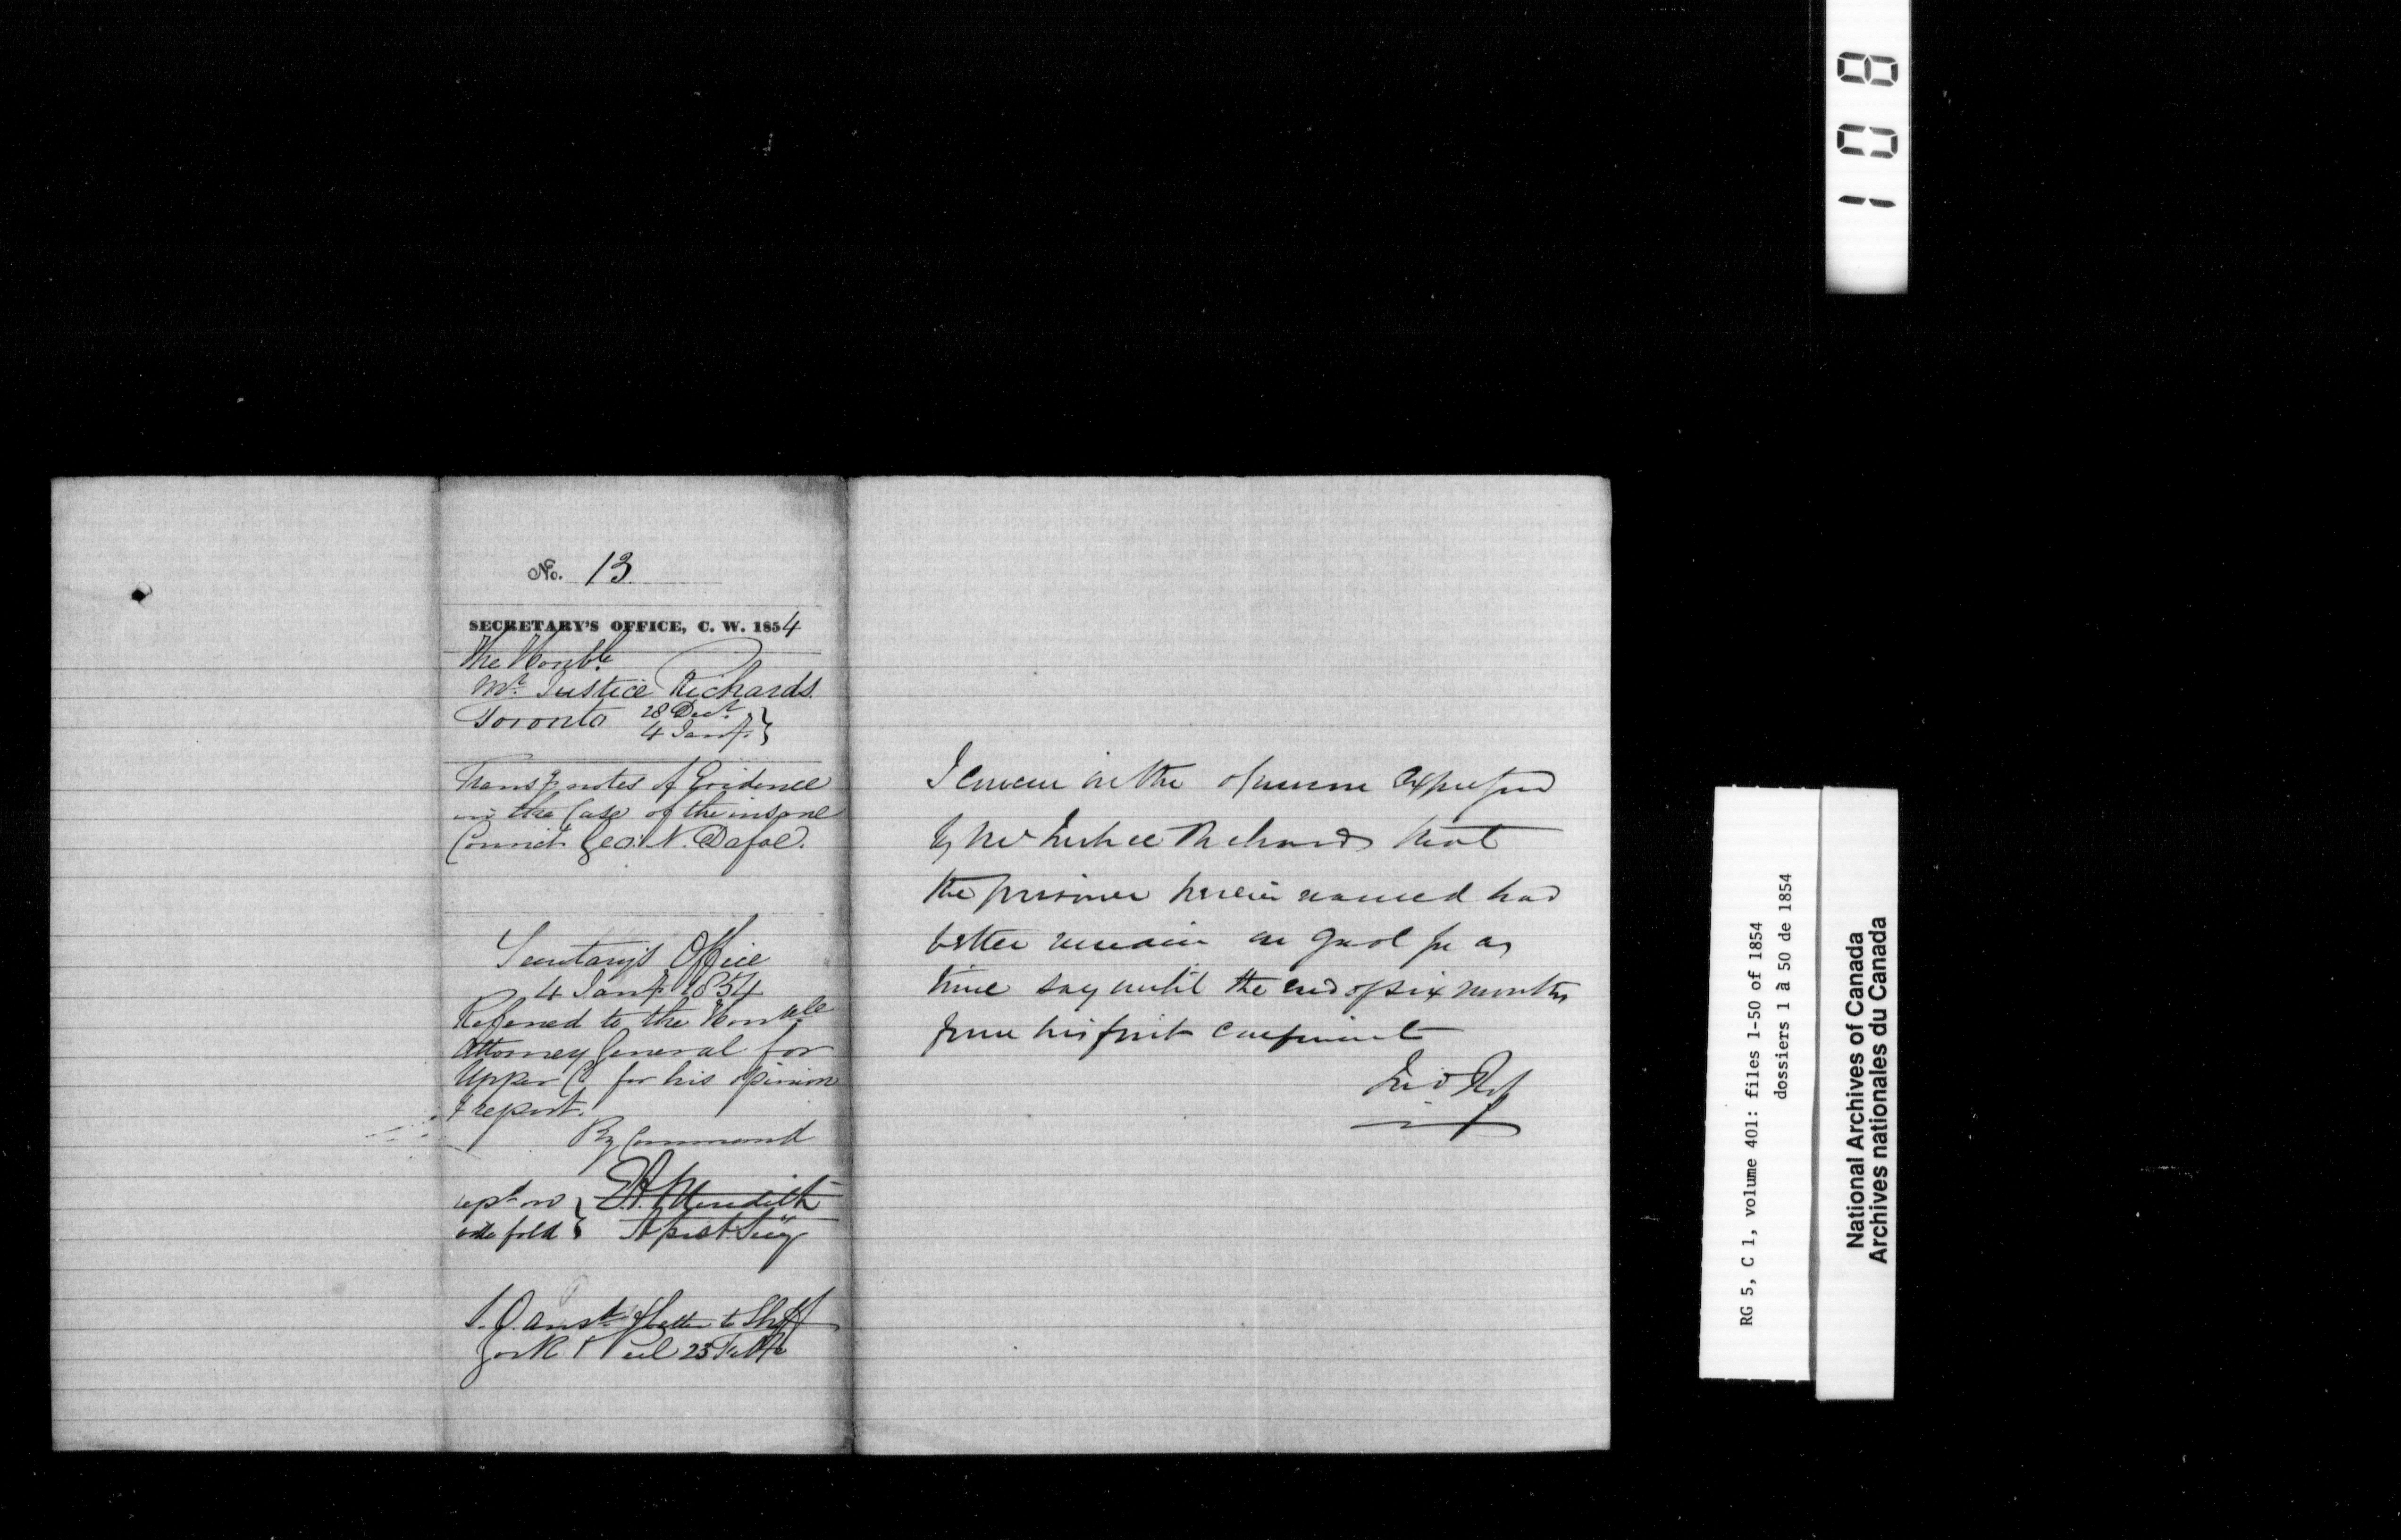 No. 13
SECRETARY'S OFFICE, C. W. 1854
The Honble
Mr. Justice Richards
Toronto 28 Decr.
4 Jany.
Transg notes of Evidence
in the Case of the insane
Convict Geo. N. Dafoe.
Secretary's Office
4 Jany 1854
Referred to the Honble
Attorney General for
Upper C. for his opinion
& report.
By Command
rept on E.A. Meredith
on the fold Assist. Secy
ansd. letter to Shff
York & Peel 25 Feby
I concur in the opinion expressed
by Mr Justice Richards that
the prisoner herein named had
better remain in gaol for a
time say until the end of six months
from his first confinement
108
RG 5, C 1, volume 401: files 1-50 of 1854
dossiers 1 à 50 de 1854
National Archives of Canada
Archives nationales du Canada